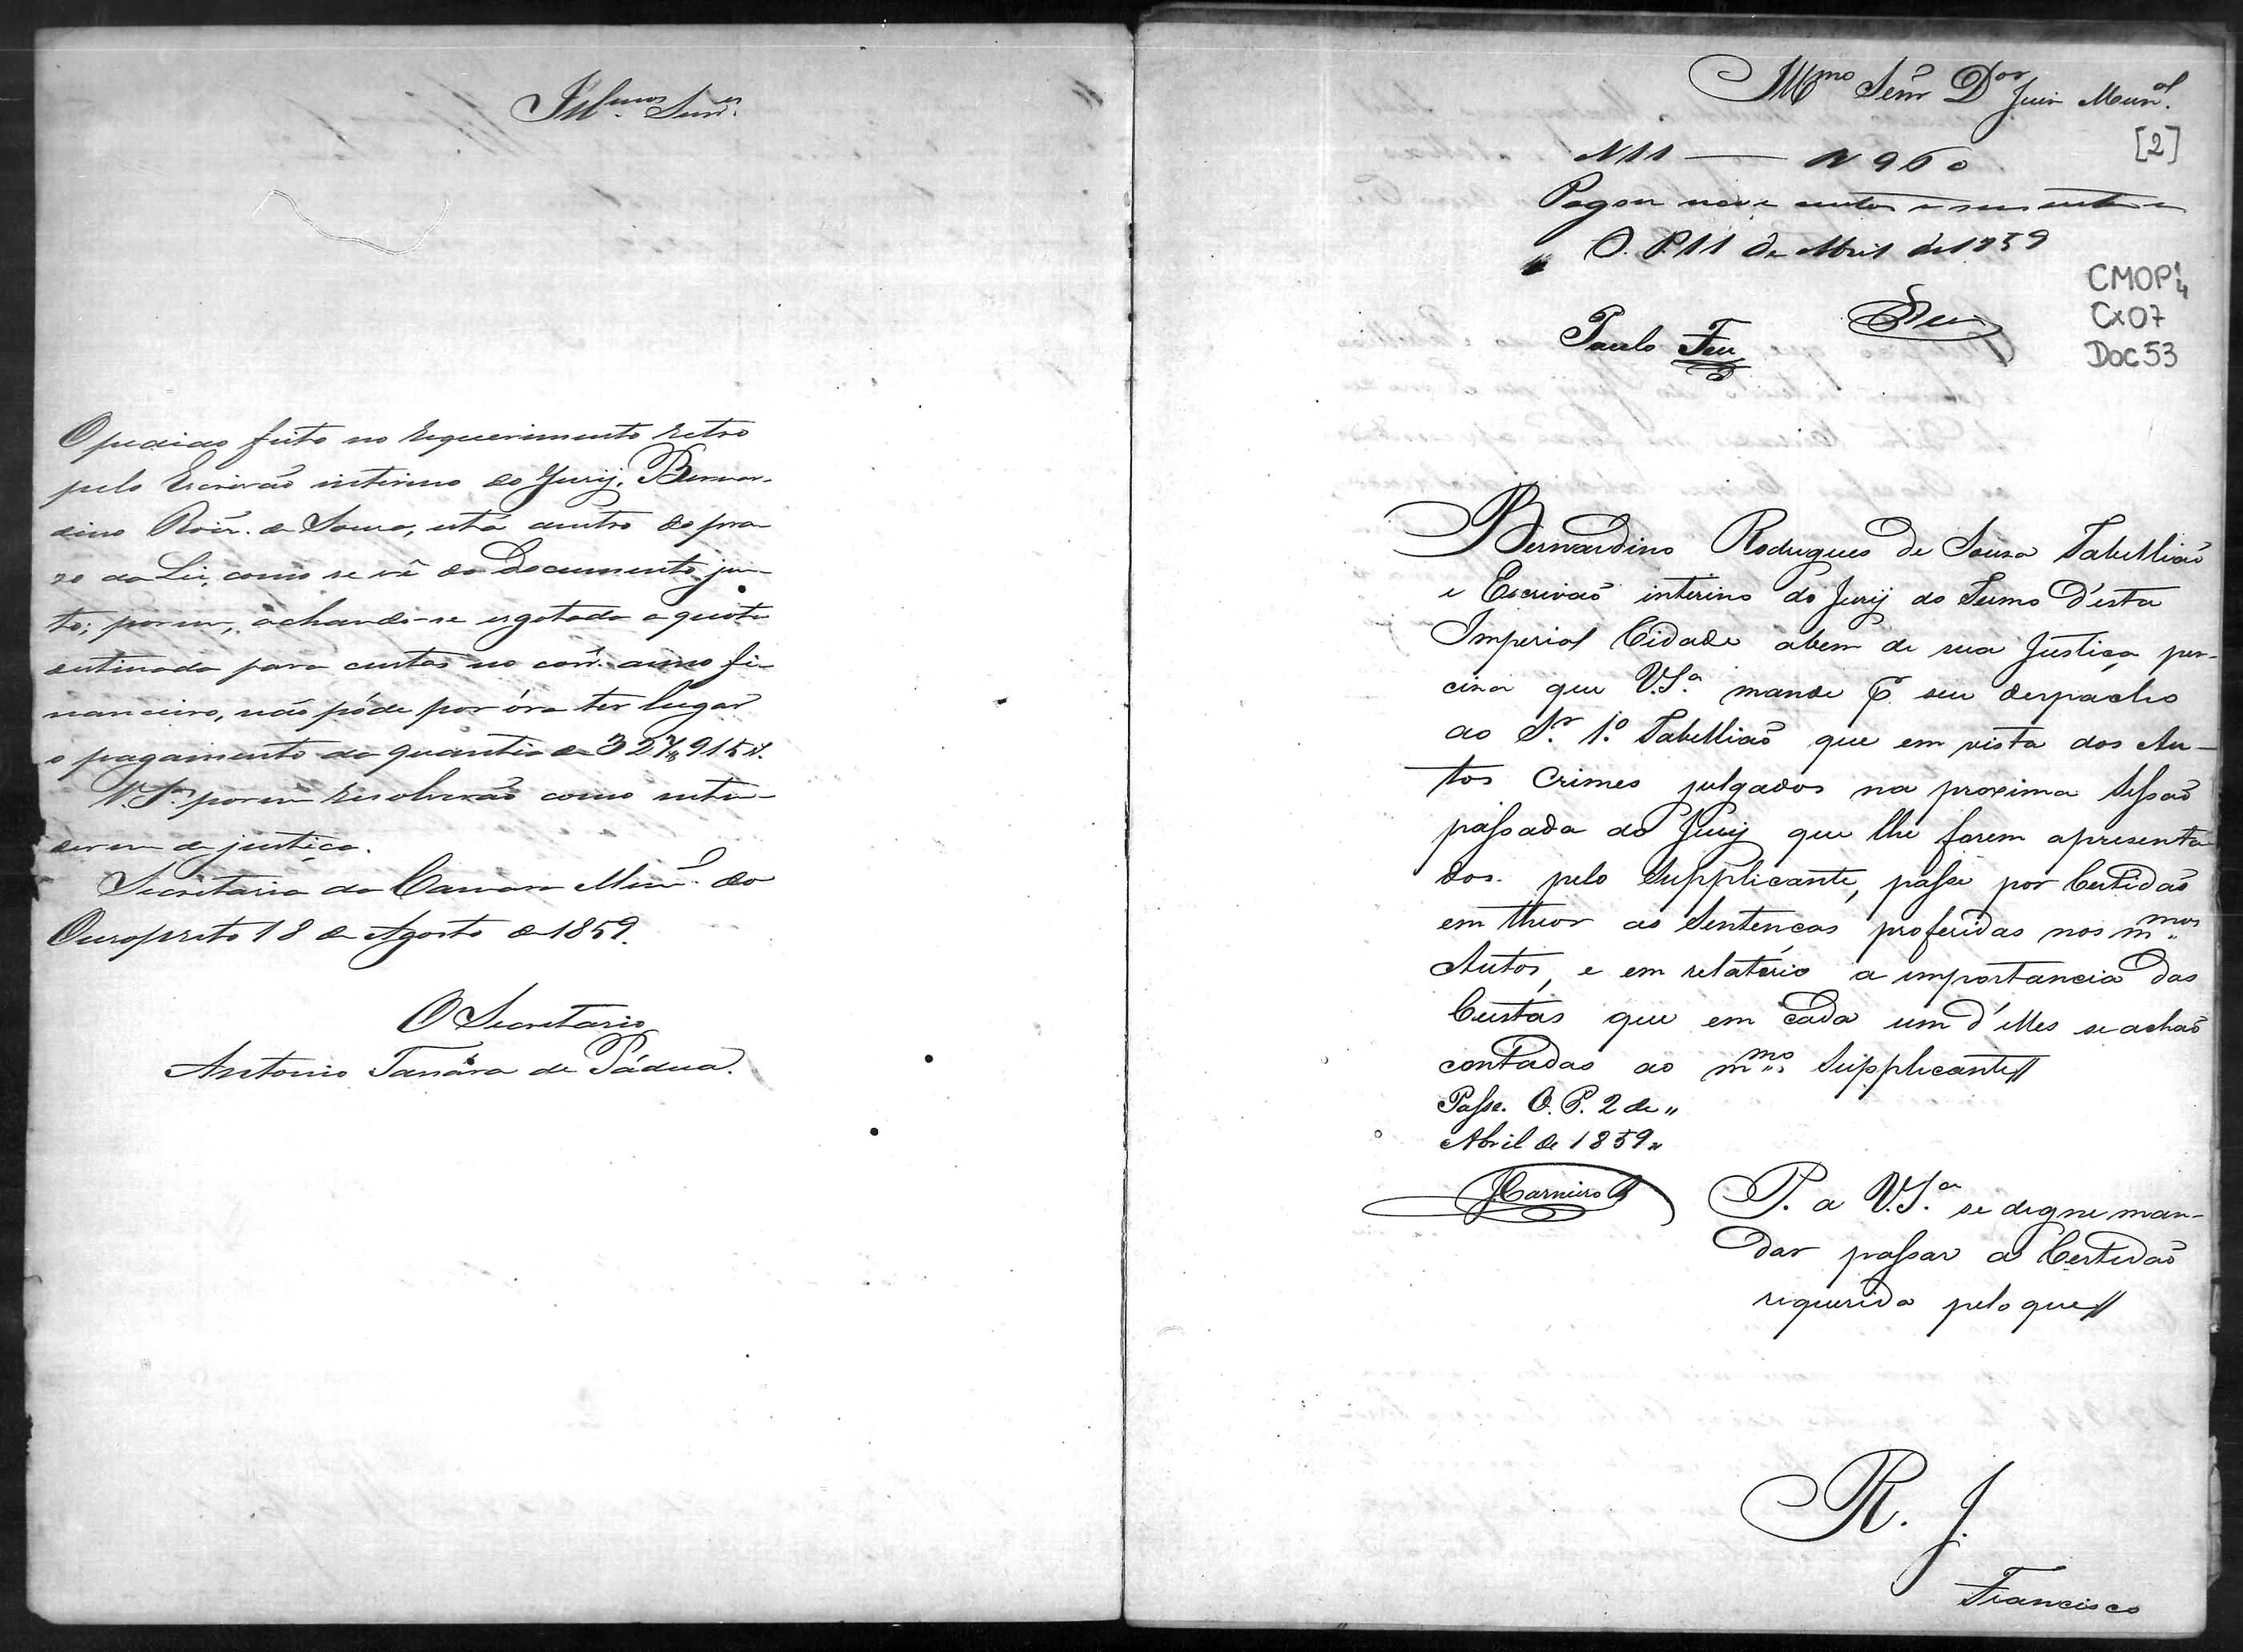 Illmos Snres
O pedido feito no requerimento retro
pelo Escrivão interino do Jurij, Bernar-
dino Roiz. de Souza, está dentro do pra-
zo da Lei, como se vê do Documento jun-
to; porem, achando-se esgotada a quota
destinada para custas no corr. anno fi-
nanceiro, não póde por óra ter lugar
o pagamento da quantia de 327$915 rs.
V. Sas. porem resolverão como enten-
derem de justiça.
Secretaria da Camara Mun.al do
Ouropreto 18 de Agosto de 1859.
O Secretario
Antonio de Pádua.
Illmo Senr Dor Juiz Munal.
[2]
N 11 — R 960
Pagou nove centos e sessenta rs
O. P. 11 de Abril de 1859
CMOP 4
Cx 07
Doc 53
Paulo Feu
Bernardino Rodrigues de Souza Tabellião
e Escrivão interino do Jurij do Termo d'esta
Imperial Cidade abem de sua Justiça per-
cisa que V.Sa. mande p. seu despacho
ao Sr. 1.o Tabellião que em vista dos Au-
tos Crimes julgados na proxima Sessão
passada do Jurij que lhe forem apresenta-
dos pelo Supplicante, passe por Certidão
em theor as Sentenças proferidas nos mmos
Autos, e em relatório a importancia das
Custas que em Cada um d'elles se achão
contadas ao mmo Supplicante//
Passe. O. P. 2 de "
Abril de 1859 "
JCarneiro
P. a V.Sa. se digne man-
dar passar a Certidão
requerida pelo que//
R. J.
Francisco